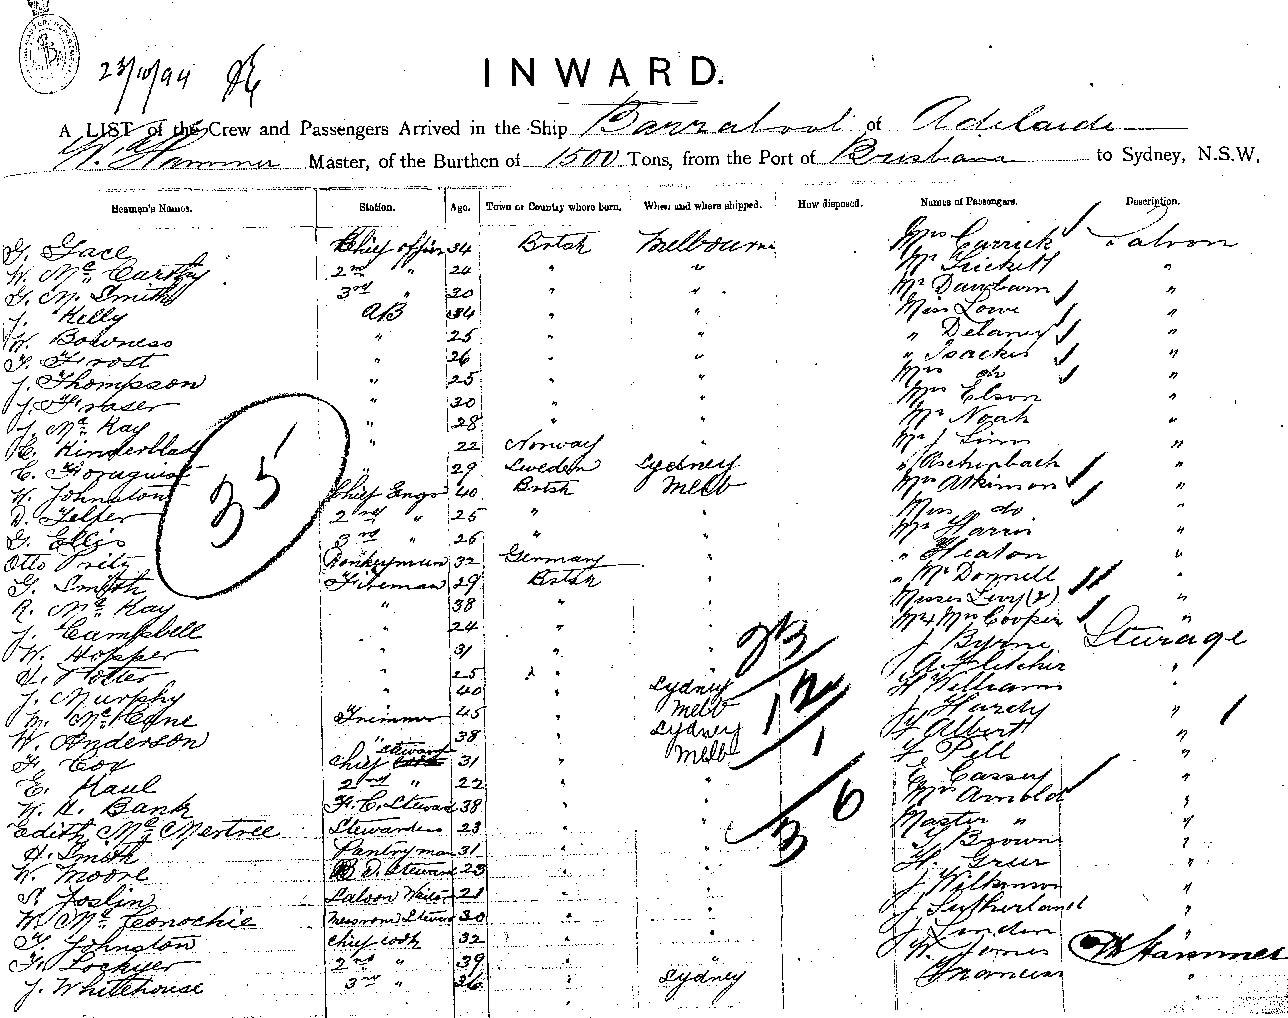 23/10/94
INWARD.
A LIST of the Crew and Passengers Arrived in the Ship Barrabool of Adelaide
W. Hammer Master, of the Burthen of 1500 Tons, from the Port of Brisbane to Sydney, N.S.W,
Seamen's Names. Station. Age. Town or Country where born. When and where shipped. How disposed. Names of Passengers. Description.
G. Gace Chief officer 34 Brtsh Melbourne Mrs Carrick Saloon
W. McCarthy 2nd " 24 " " Mr Trickett "
G. M. Smith 3rd " 30 " " Mr Dawbarn "
J. Kelly AB 34 " " Miss Lowe "
W. Bowness " 25 " " " Delaney "
F. Frost " 26 " " " Isaacks "
J. Thompson " 25 " " Mrs do "
J. Fraser " 30 " " Mrs Elson "
J. McKay " 28 " " Mr Noah "
E. Kinderblad " 22 Norway " Mr J Linn "
C. " 29 Sweden Sydney " "
W. Johnston Chief Engr 40 Brtsh Melb Mrs Atkinson "
D. Telfer 2nd " 25 " " Miss do "
G. Ellis 3rd " 26 " " Mr Harris "
Otto Pritz Donkeyman 32 Germany " " Heaton "
G. Smyth Fireman 29 Brtsh " " McDonnell "
R. McKay " 38 " " Misses Levy (2) "
J. Campbell " 24 " " Mr & Mrs Cooper "
W. Hopper " 31 " " J Byrne Steerage
H. Hotter " 25 " " A Fletcher "
J. Murphy " 40 " Sydney W William "
M. McCane Trimmer 45 " Melb J Hardy "
W. Anderson " 38 " Sydney F Albert "
F. Cox Chief Steward 31 " Melb F. Pell "
E. Haul 2nd " 22 " " E Cassey "
W. H. Bank F. C. Steward 38 " " Mrs Arnold "
Edith McMertree Stewardess 23 " " Master " "
H. Smith Pantryman 31 " " J Brown "
W. Moore B D Steward 23 " " H. Greer "
S. Joslin Saloon Waiter 21 " " J Wilkinson "
W. McConochie Messroom Steward 30 " " J Sutherland "
F. Johnston Chief Cook 32 " " J Linden "
F. Lockyer 2nd " 39 " " W. James W Hammer
J. Whitehouse 3rd " 26 " Sydney Francis "
35
23
12
1
36